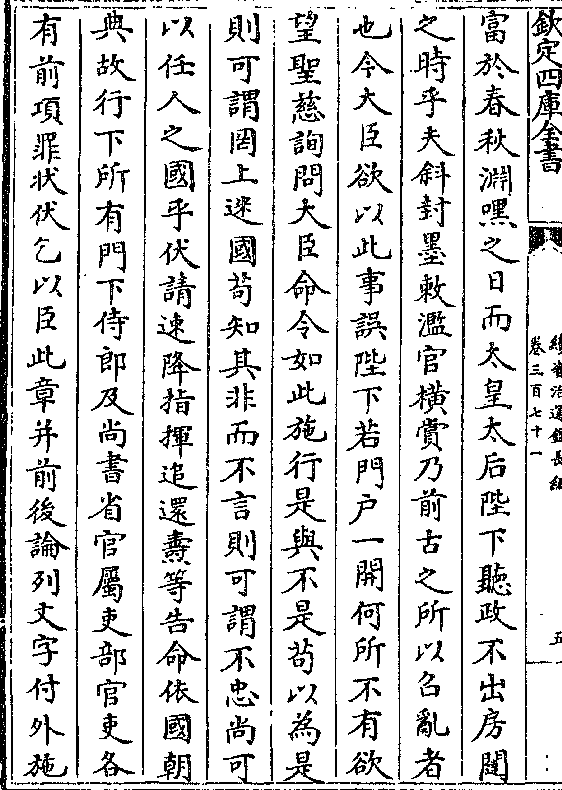 欽定四庫全書
續資治通鑑長編
卷三百七十一
五
富於春秋淵嘿之日而太皇太后陛下聽政不出房闥
之時乎夫斜封墨敕濫官橫賞乃前古之所以召亂者
也今大臣欲以此事誤陛下若門户一開何所不有欲
望聖慈詢問大臣命令如此施行是與不是茍以為是
則可謂罔上迷國茍知其非而不言則可謂不忠尚可
以任人之國乎伏請速降指揮追還燾等告命依國朝
典故行下所有門下侍郎及尚書省官屬吏部官吏各
有前項罪状伏乞以臣此章并前後論列文字付外施